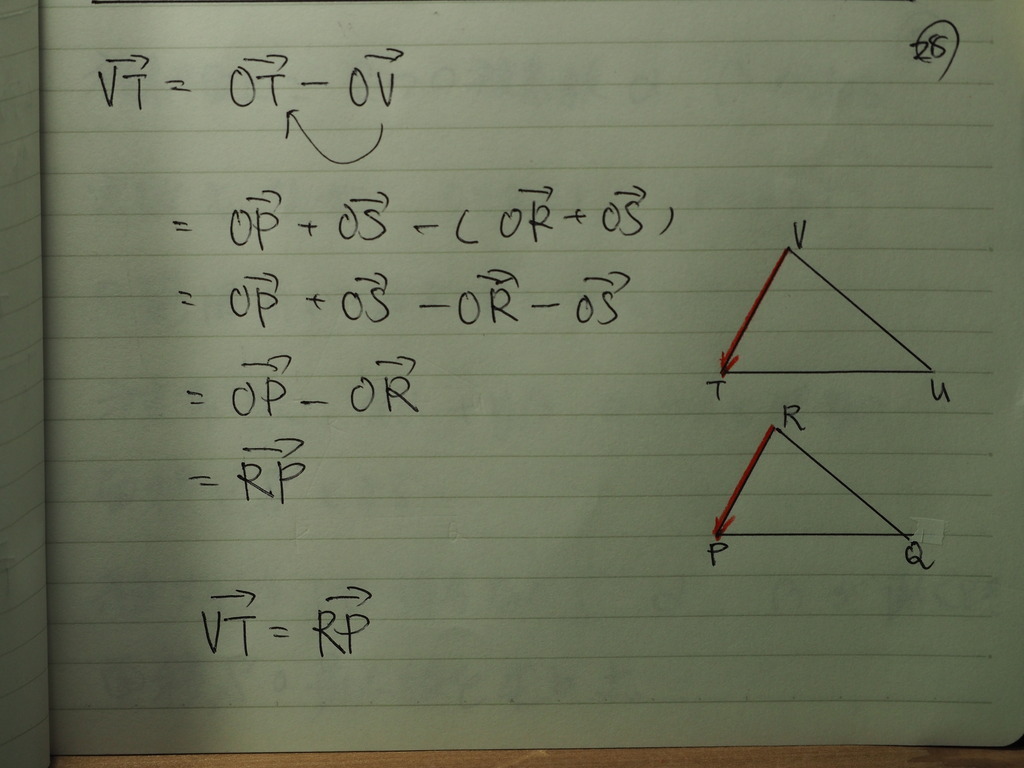 28
$\overrightarrow{VT} = \overrightarrow{OT} - \overrightarrow{OV}$
$= \overrightarrow{OP} + \overrightarrow{OS} - (\overrightarrow{OR} + \overrightarrow{OS})$
$= \overrightarrow{OP} + \overrightarrow{OS} - \overrightarrow{OR} - \overrightarrow{OS}$
$= \overrightarrow{OP} - \overrightarrow{OR}$
$= \overrightarrow{RP}$
$\overrightarrow{VT} = \overrightarrow{RP}$
V
T U
R
P Q